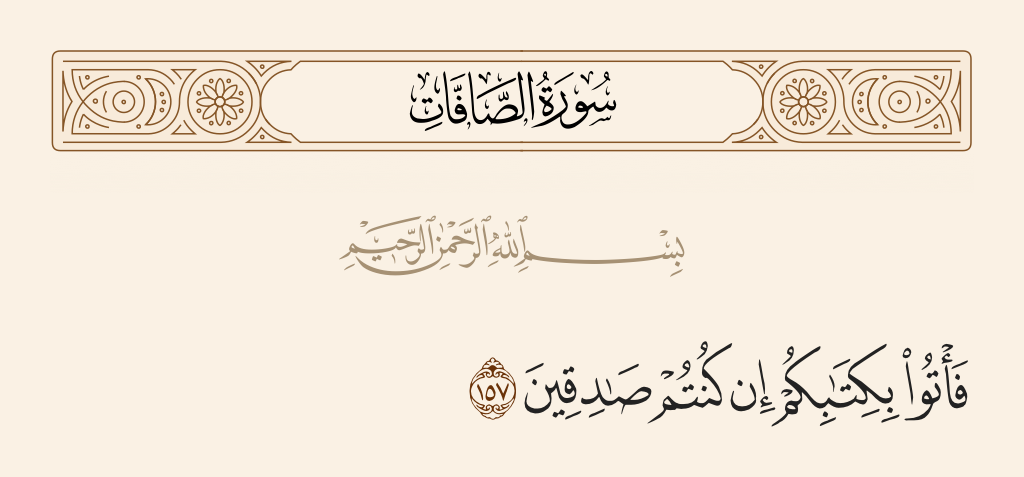 سُورَةُ الصَّافَّاتِ
بِسْمِ ٱللَّهِ ٱلرَّحْمَٰنِ ٱلرَّحِيمِ
فَأْتُوا۟ بِكِتَٰبِكُمْ إِن كُنتُمْ صَٰدِقِينَ ١٥٧